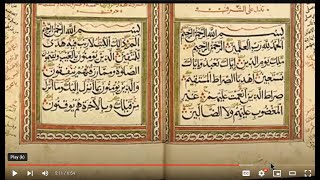 بسم الله الرحمن الرحيم
الحمد لله رب العلمين الرحمن الرحيم
ملك يوم الدين إياك نعبد وإياك
نستعين اهدنا الصراط المستقيم
صراط الذين أنعمت عليهم غير
المغضوب عليهم ولا الضالين
بسم الله الرحمن الرحيم
الم ذلك الكتاب لا ريب فيه هدى
للمتقين الذين يؤمنون بالغيب ويقيمون
الصلاة ومما رزقناهم ينفقون
والذين يؤمنون بما أنزل إليك وما أنزل
من قبلك وبالآخرة هم يوقنون
Play (k)